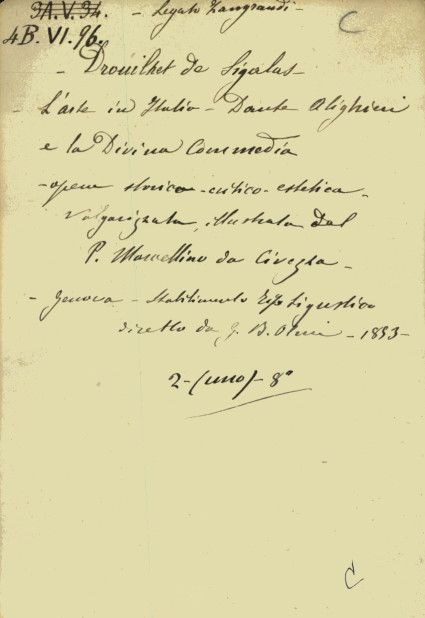 3A.V.34. - Legato Zangrandi - C
4B.VI.96.
- Drouilhet de Sigalas -
- L'arte in Italia - Dante Alighieri
e la Divina Commedia
- opera storico-critico-estetica -
Volgarizzata, illustrata dal
P. Marcellino da Civezza -
- Genova - Stabilimento Tipo Ligustico
diretto da G. B. - 1853 -
2 - (uno) - 8°
C